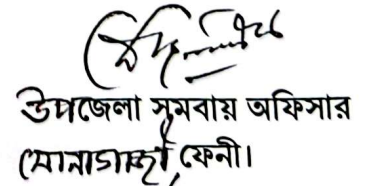 উপজেলা সমবায় অফিসার
সোনাগাজী, ফেনী।